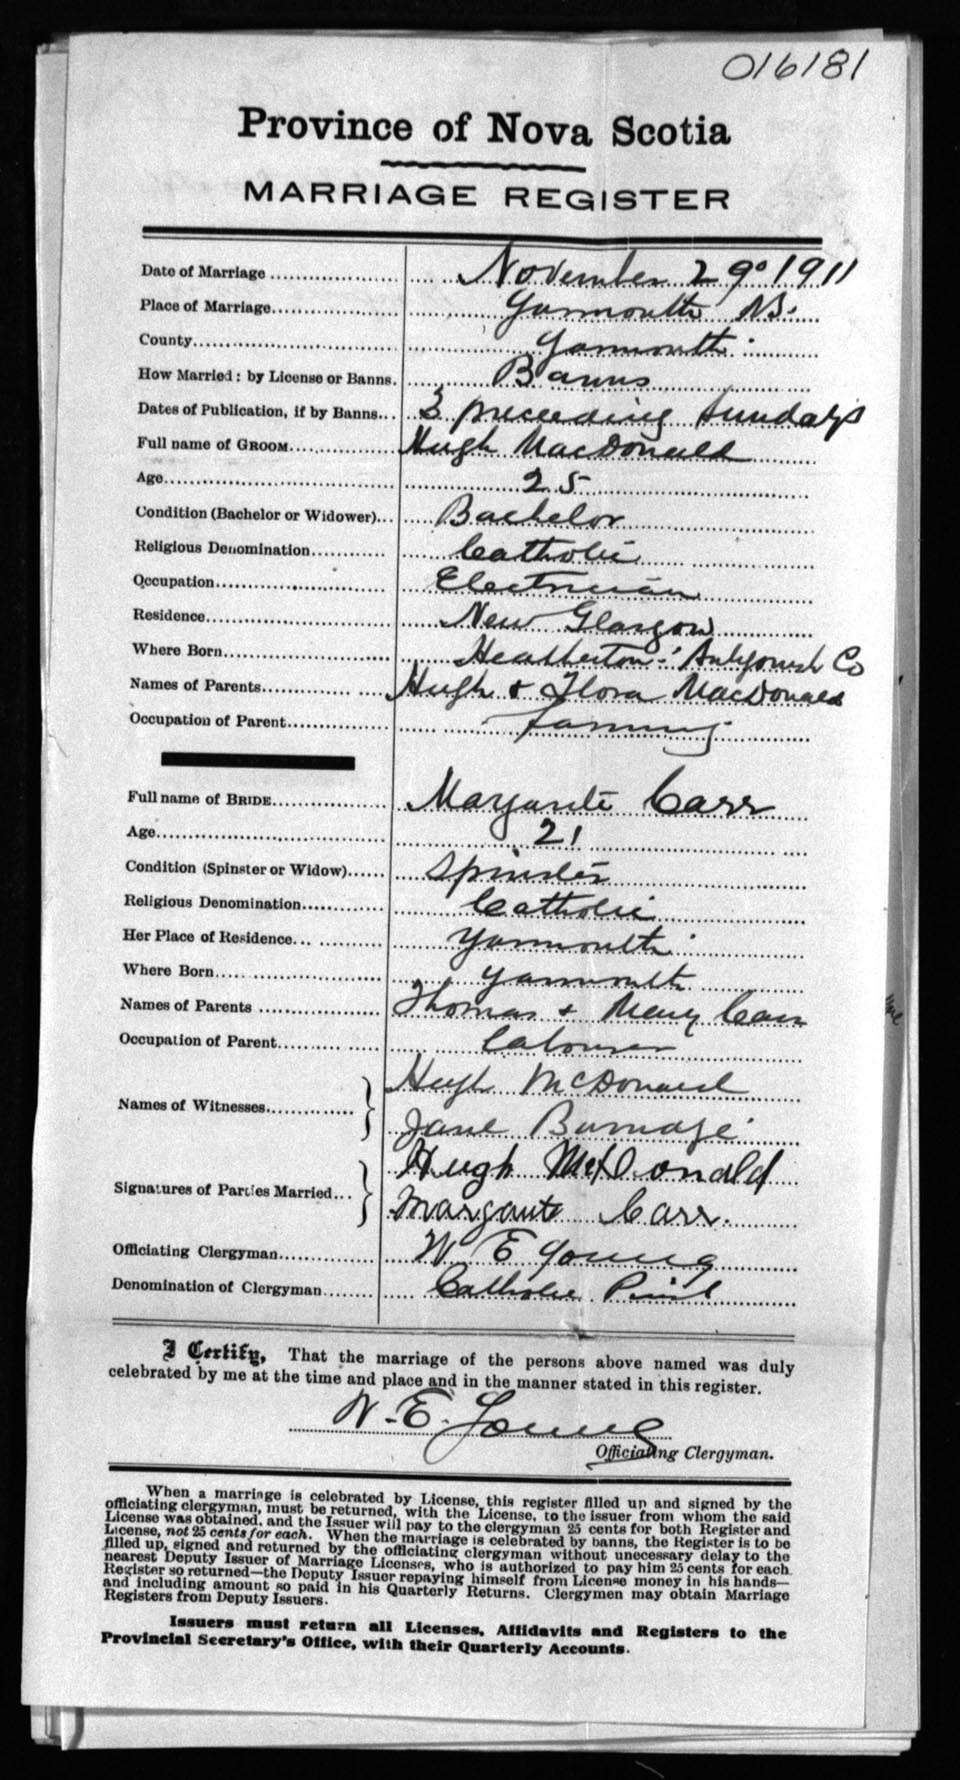 016181
Province of Nova Scotia
MARRIAGE REGISTER
Date of Marriage November 29º 1911
Place of Marriage Yarmouth N.S.
County Yarmouth
How Married: by License or Banns. Banns
Dates of Publication, if by Banns 3 preceeding Sundays
Full name of GROOM Hugh MacDonald
Age 25
Condition (Bachelor or Widower) Bachelor
Religious Denomination Catholic
Occupation Electrician
Residence New Glasgow
Where Born Heatherton Antigonish Co
Names of Parents Hugh & Flora MacDonald
Occupation of Parent farming
Full name of BRIDE Margarite Carr
Age 21
Condition (Spinster or Widow) Spinster
Religious Denomination Catholic
Her Place of Residence Yarmouth
Where Born Yarmouth
Names of Parents Thomas & Mary Carr
Occupation of Parent Labourer
Hugh McDonald
Names of Witnesses
Jane
Hugh McDonald
Signatures of Parties Married
Margarite Carr.
Officiating Clergyman W E Young
Denomination of Clergyman Catholic Priest
I Certify, That the marriage of the persons above named was duly
celebrated by me at the time and place and in the manner stated in this register.
W. E. Young
Officiating Clergyman.
When a marriage is celebrated by License, this register filled up and signed by the
officiating clergyman, must be returned, with the License, to the issuer from whom the said
License was obtained, and the Issuer will pay to the clergyman 25 cents for both Register and
License, not 25 cents for each. When the marriage is celebrated by banns, the Register is to be
filled up, signed and returned by the officiating clergyman without unnecessary delay to the
nearest Deputy Issuer of Marriage Licenses, who is authorized to pay him 25 cents for each
Register so returned—the Deputy Issuer repaying himself from License money in his hands—
and including amount so paid in his Quarterly Returns. Clergymen may obtain Marriage
Registers from Deputy Issuers.
Issuers must return all Licenses, Affidavits and Registers to the
Provincial Secretary's Office, with their Quarterly Accounts.